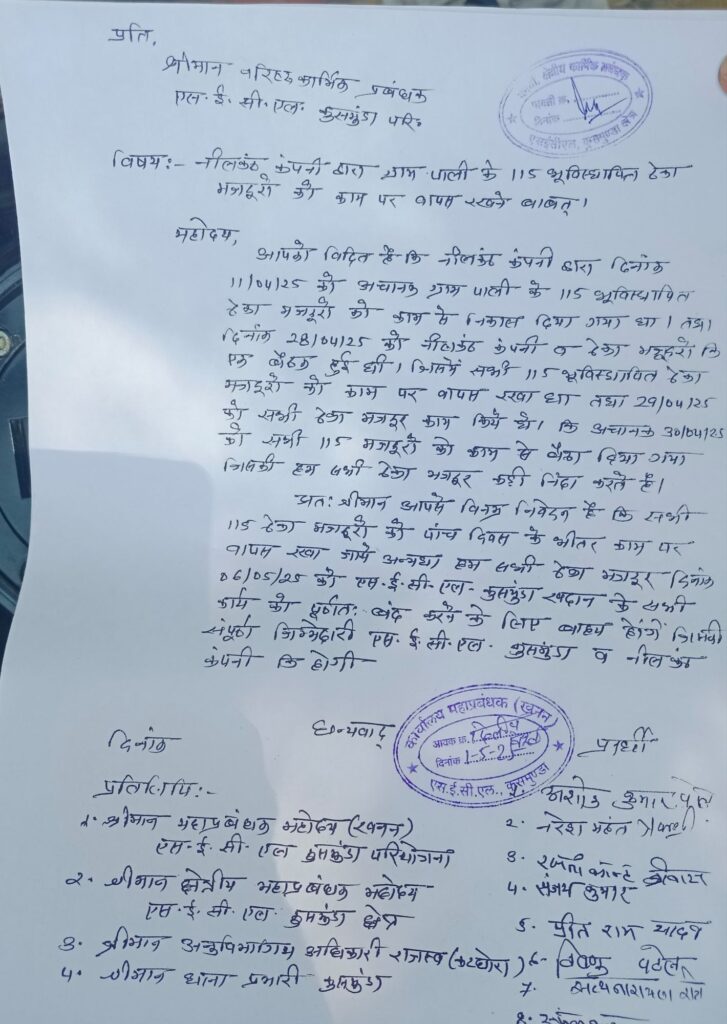 प्रति,
श्रीमान वरिष्ठ कार्मिक प्रबंधक
एस.ई.सी.एल. कुसमुंडा परि.
क्षेत्रीय कार्मिक प्रबंधक
पावती क्र.
दिनांक
एसईसीएल, कुसमुण्डा क्षेत्र
विषय:- नीलकंठ कंपनी द्वारा ग्राम पाली के 115 भूविस्थापित ठेका
मजदूरों को काम पर वापस रखने बाबत्।
महोदय,
आपको विदित है कि नीलकंठ कंपनी द्वारा दिनांक
11/04/25 को अचानक ग्राम पाली के 115 भूविस्थापित
ठेका मजदूरों को काम से निकाल दिया गया था। तथा
दिनांक 28/04/25 को नीलकंठ कंपनी व ठेका मजदूरों कि
एक बैठक हुई थी। जिसमें सभी 115 भूविस्थापित ठेका
मजदूरों को काम पर वापस रखा था तथा 29/04/25
को सभी ठेका मजदूर काम किये थे। कि अचानक 30/04/25
को सभी 115 मजदूरों को काम से बैठा दिया गया
जिसकी हम सभी ठेका मजदूर कड़ी निंदा करते है।
अतः श्रीमान आपसे विनम्र निवेदन है कि सभी
115 ठेका मजदूरों को पांच दिवस के भीतर काम पर
वापस रखा जाये अन्यथा हम सभी ठेका मजदूर दिनांक
06/05/25 को एस.ई.सी.एल. कुसमुंडा खदान के सभी
कार्य को पूर्णतः बंद करने के लिए बाध्य होंगे जिसकी
संपूर्ण जिम्मेदारी एस.ई.सी.एल. कुसमुंडा व नीलकंठ
कंपनी कि होगी
धन्यवाद्
कार्यालय महाप्रबंधक (खनन)
आवक क्र.
दिनांक 1-5-25
एस.ई.सी.एल., कुसमुण्डा
दिनांक
प्रार्थी
प्रतिलिपि:-
1. श्रीमान महाप्रबंधक महोदय (खनन)
एस.ई.सी.एल कुसमुंडा परियोजना
2. श्रीमान क्षेत्रीय महाप्रबंधक महोदय
एस.ई.सी.एल. कुसमुंडा क्षेत्र
3. श्रीमान अनुविभागीय अधिकारी राजस्व (कटघोरा)
4. श्रीमान थाना प्रभारी कुसमुंडा
1. अशोक कुमार पटेल
2. नरेश महंत
3.
4. संजय कुमार
5. प्रीत राम यादव
6. विष्णु पटेल
7. सत्यनारायण
8.